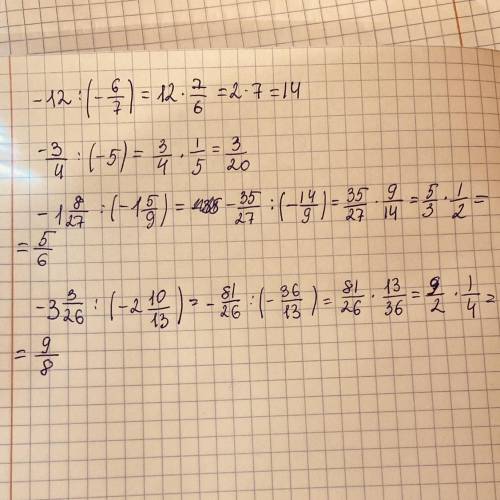 -12 : (-6/7) = 12 · 7/6 = 2 · 7 = 14
-3/4 : (-5) = 3/4 · 1/5 = 3/20
-1 8/27 : (-1 5/9) = -35/27 : (-14/9) = 35/27 · 9/14 = 5/3 · 1/2 =
= 5/6
-3 3/26 : (-2 10/13) = -81/26 : (-36/13) = 81/26 · 13/36 = 9/2 · 1/4 =
= 9/8